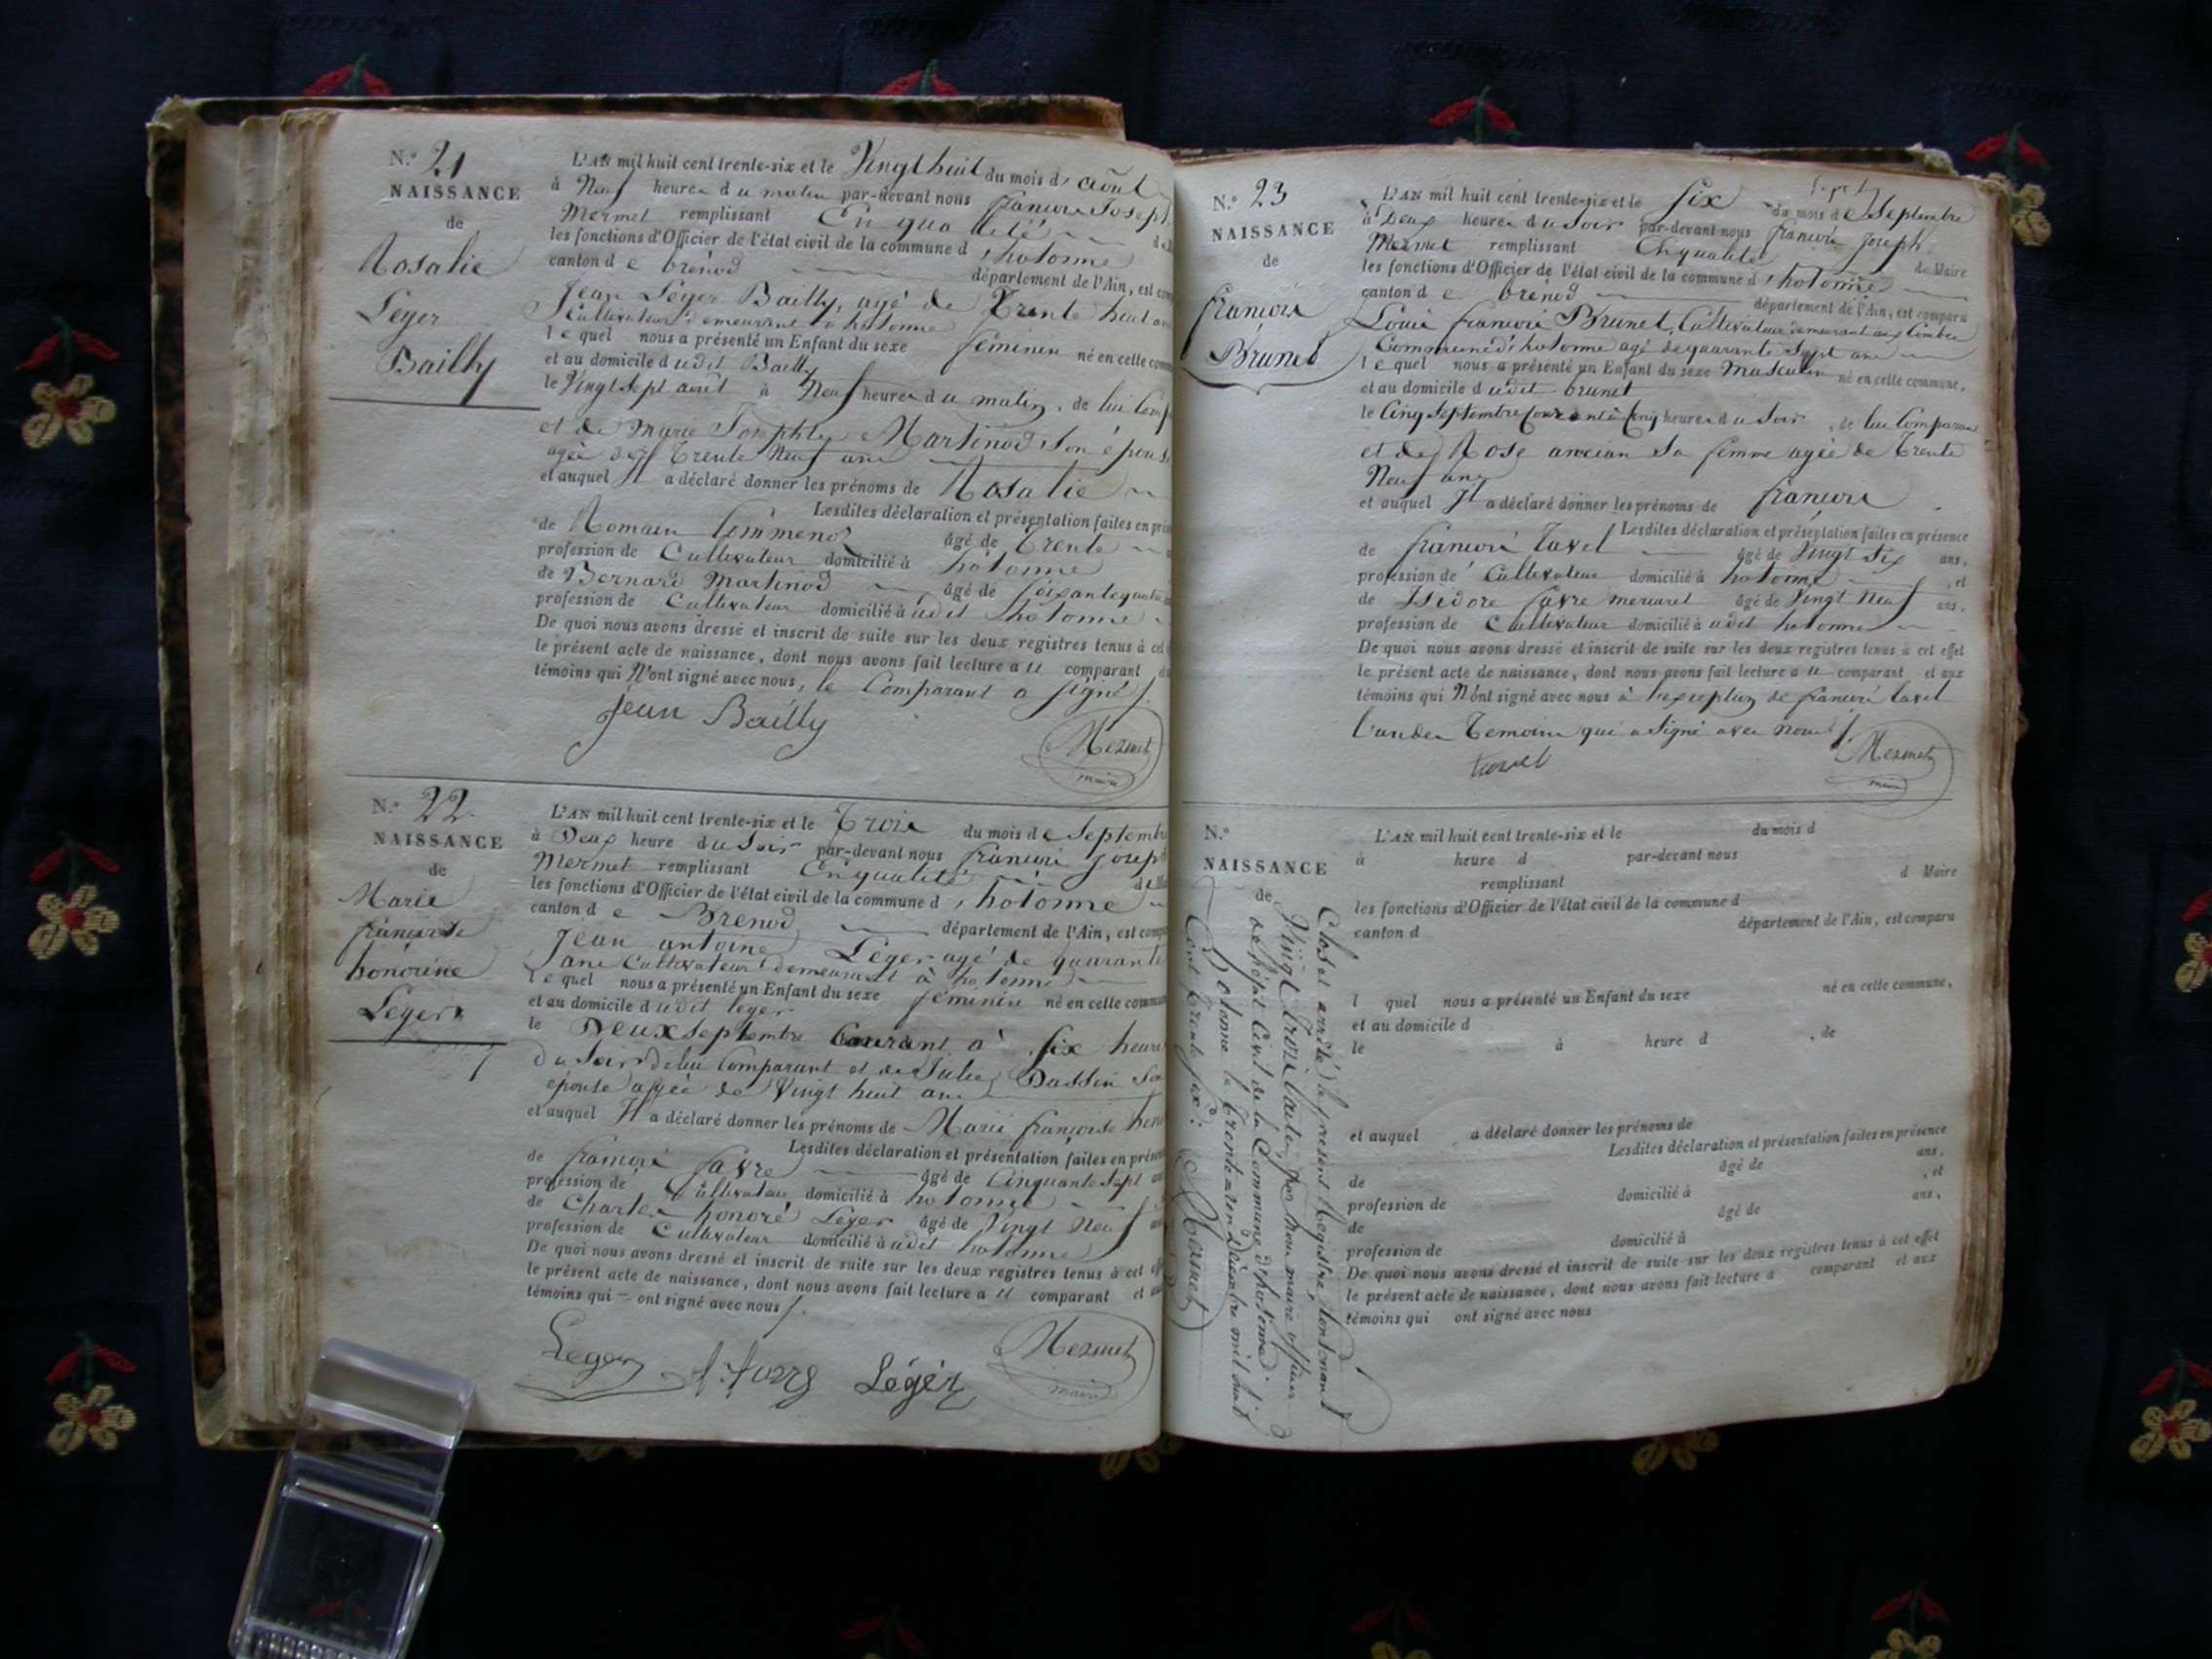 N.° 21
NAISSANCE
de
Rosalie
Leger
Bailly
L'AN mil huit cent trente-six et le Vingt huit du mois d'août
à Neuf heures du matin par-devant nous francois Joseph
Mermet remplissant En qualité
les fonctions d'Officier de l'état civil de la commune d'hotonne
canton de brénod département de l'Ain, est
Jean Leger Bailly, agé de Trente huit
Cultivateur demeurant à hotonne
lequel nous a présenté un Enfant du sexe féminin né en cette
et au domicile dudit Bailly
le Vingt sept août à Neuf heures du matin, de lui
et de Marie Josephte Martinod son épouse
agée de Trente Neuf ans
et auquel Il a déclaré donner les prénoms de Rosalie
Lesdites déclaration et présentation faites en
de Romain âgé de Trente
profession de Cultivateur domicilié à hotonne
de Bernard Martinod âgé de soixante quatre
profession de Cultivateur domicilié à udit hotonne
De quoi nous avons dressé et inscrit de suite sur les deux registres tenus à cet
le présent acte de naissance, dont nous avons fait lecture au comparant
témoins qui N'ont signé avec nous, le Comparant a signé
Jean Bailly
Mermet
maire
N.° 22
NAISSANCE
de
Marie
francoise
honorine
Leger
L'AN mil huit cent trente-six et le Trois du mois de Septembre
à Deux heure du Soir par-devant nous francois Joseph
Mermet remplissant En qualité
les fonctions d'Officier de l'état civil de la commune d'hotonne
canton de Brenod département de l'Ain, est
Jean antoine Leger agé de quarante
ans Cultivateur demeurant à hotonne
lequel nous a présenté un Enfant du sexe féminin né en cette commune
et au domicile dudit leger
le Deux septembre Courant à six heure
du Soir de lui Comparant et de Julie Dassin Son
épouse agée de Vingt huit ans
et auquel Il a déclaré donner les prénoms de Marie francoise
Lesdites déclaration et présentation faites en
de francois favre âgé de Cinquante Sept
profession de Cultivateur domicilié à hotonne
de Charles honoré Leger âgé de Vingt Neuf
profession de Cultivateur domicilié à udit hotonne
De quoi nous avons dressé et inscrit de suite sur les deux registres tenus à cet
le présent acte de naissance, dont nous avons fait lecture au comparant et
témoins qui ont signé avec nous
Leger Léger
Mermet
maire
N.° 23
NAISSANCE
de
francois
Brunet
L'AN mil huit cent trente-six et le six du mois de Septembre
à Deux heures du Soir par-devant nous francois Joseph
Mermet remplissant En qualité de Maire
les fonctions d'Officier de l'état civil de la commune d'hotonne
canton de brénod département de l'Ain, est comparu
Louis francois Brunet, Cultivateur demeurant aux Combes
Commune d'hotonne agé de quarante Sept ans
lequel nous a présenté un Enfant du sexe Masculin né en cette commune,
et au domicile dudit brunet
le Cinq Septembre Courant à Cinq heures du Soir, de lui Comparant
et de Rose ancian Sa femme agée de Trente
Neuf ans
et auquel Il a déclaré donner les prénoms de francois
Lesdites déclaration et présentation faites en présence
de francois Tavel âgé de Vingt Six ans,
profession de Cultivateur domicilié à hotonne, et
de Isidore favre âgé de Vingt Neuf ans,
profession de Cultivateur domicilié à udit hotonne
De quoi nous avons dressé et inscrit de suite sur les deux registres tenus à cet effet
le présent acte de naissance, dont nous avons fait lecture au comparant et aux
témoins qui N'ont signé avec nous à l'exception de francois tavel
l'un des Temoins qui a Signé avec nous
tavel
Mermet
maire
N.°
NAISSANCE
de
L'AN mil huit cent trente-six et le du mois d
à heure d par-devant nous
remplissant d Maire
les fonctions d'Officier de l'état civil de la commune d
canton d département de l'Ain, est comparu
l quel nous a présenté un Enfant du sexe né en cette commune,
et au domicile d
le à heure d , de
et auquel a déclaré donner les prénoms de
Lesdites déclaration et présentation faites en présence
de âgé de ans,
profession de domicilié à , et
de âgé de ans,
profession de domicilié à
De quoi nous avons dressé et inscrit de suite sur les deux registres tenus à cet effet
le présent acte de naissance, dont nous avons fait lecture a comparant et aux
témoins qui ont signé avec nous
Clos et arrêté le présent Registre, Contenant
Vingt trois actes, par nous maire officier
de l'état Civil de la Commune d'hotonne
hotonne le trente un Décembre mil huit
Cent trente six.
Mermet